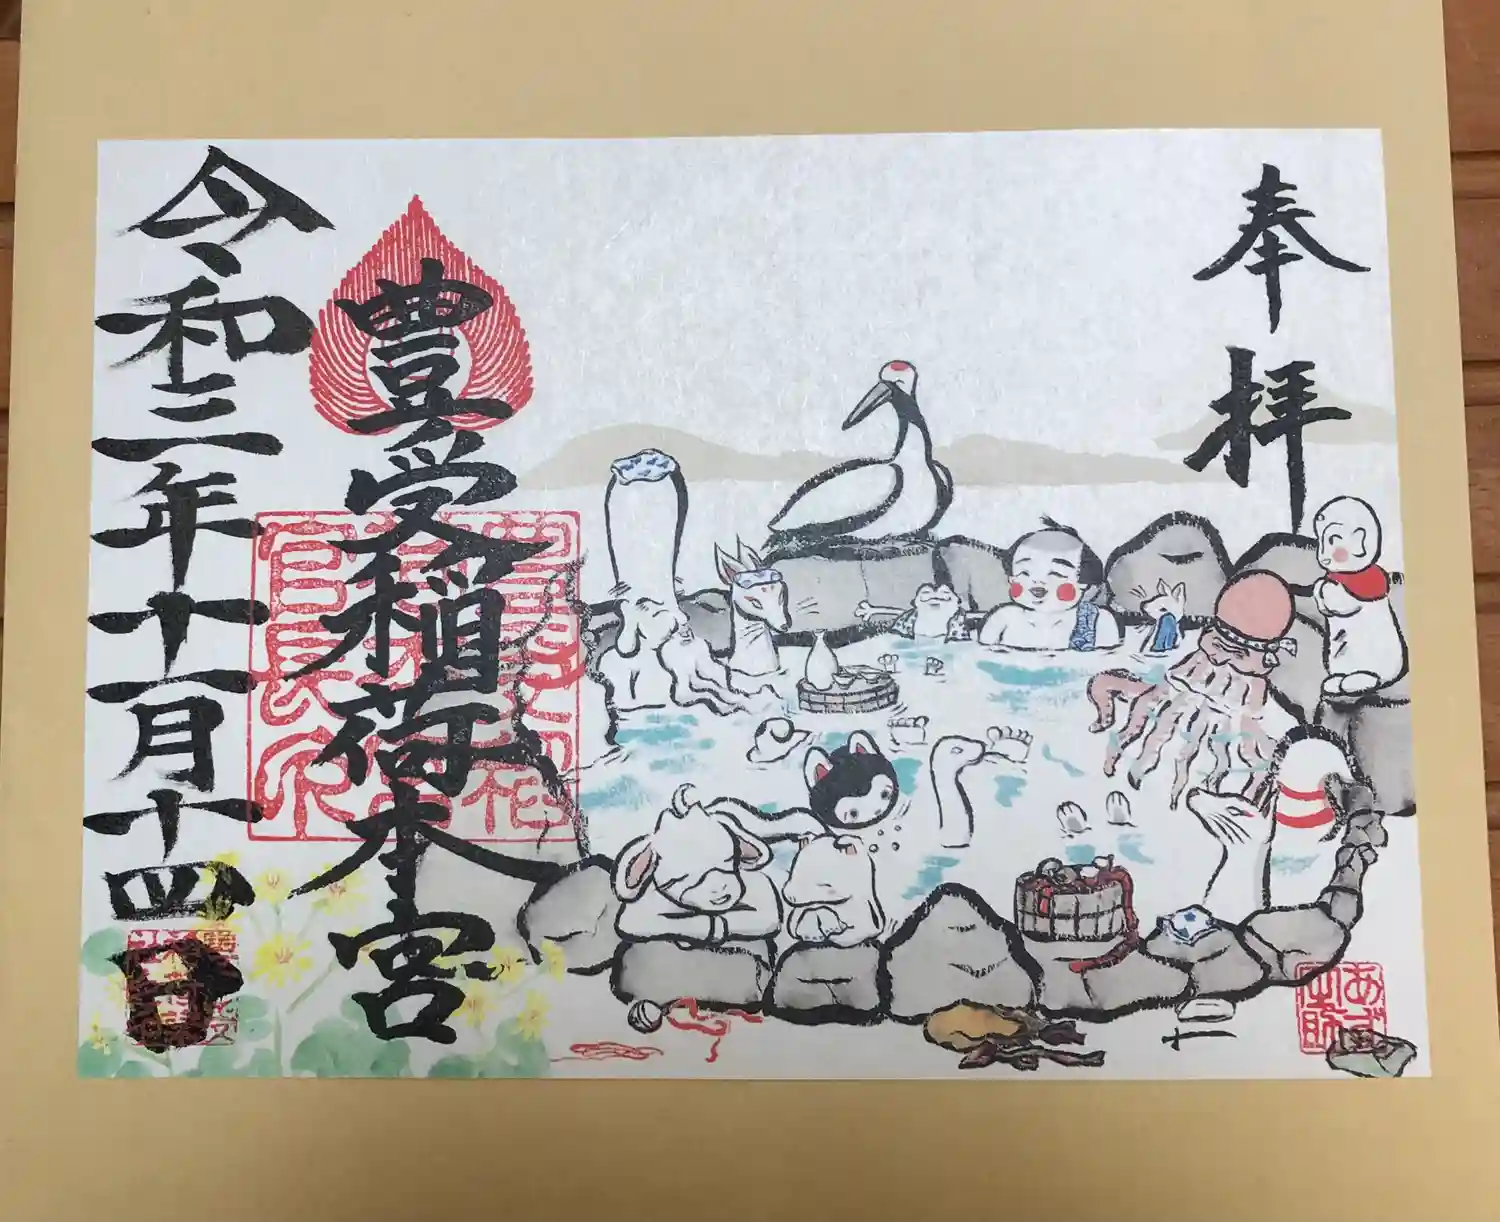 奉拝
豊受稲荷本宮
令和三年十一月十四日